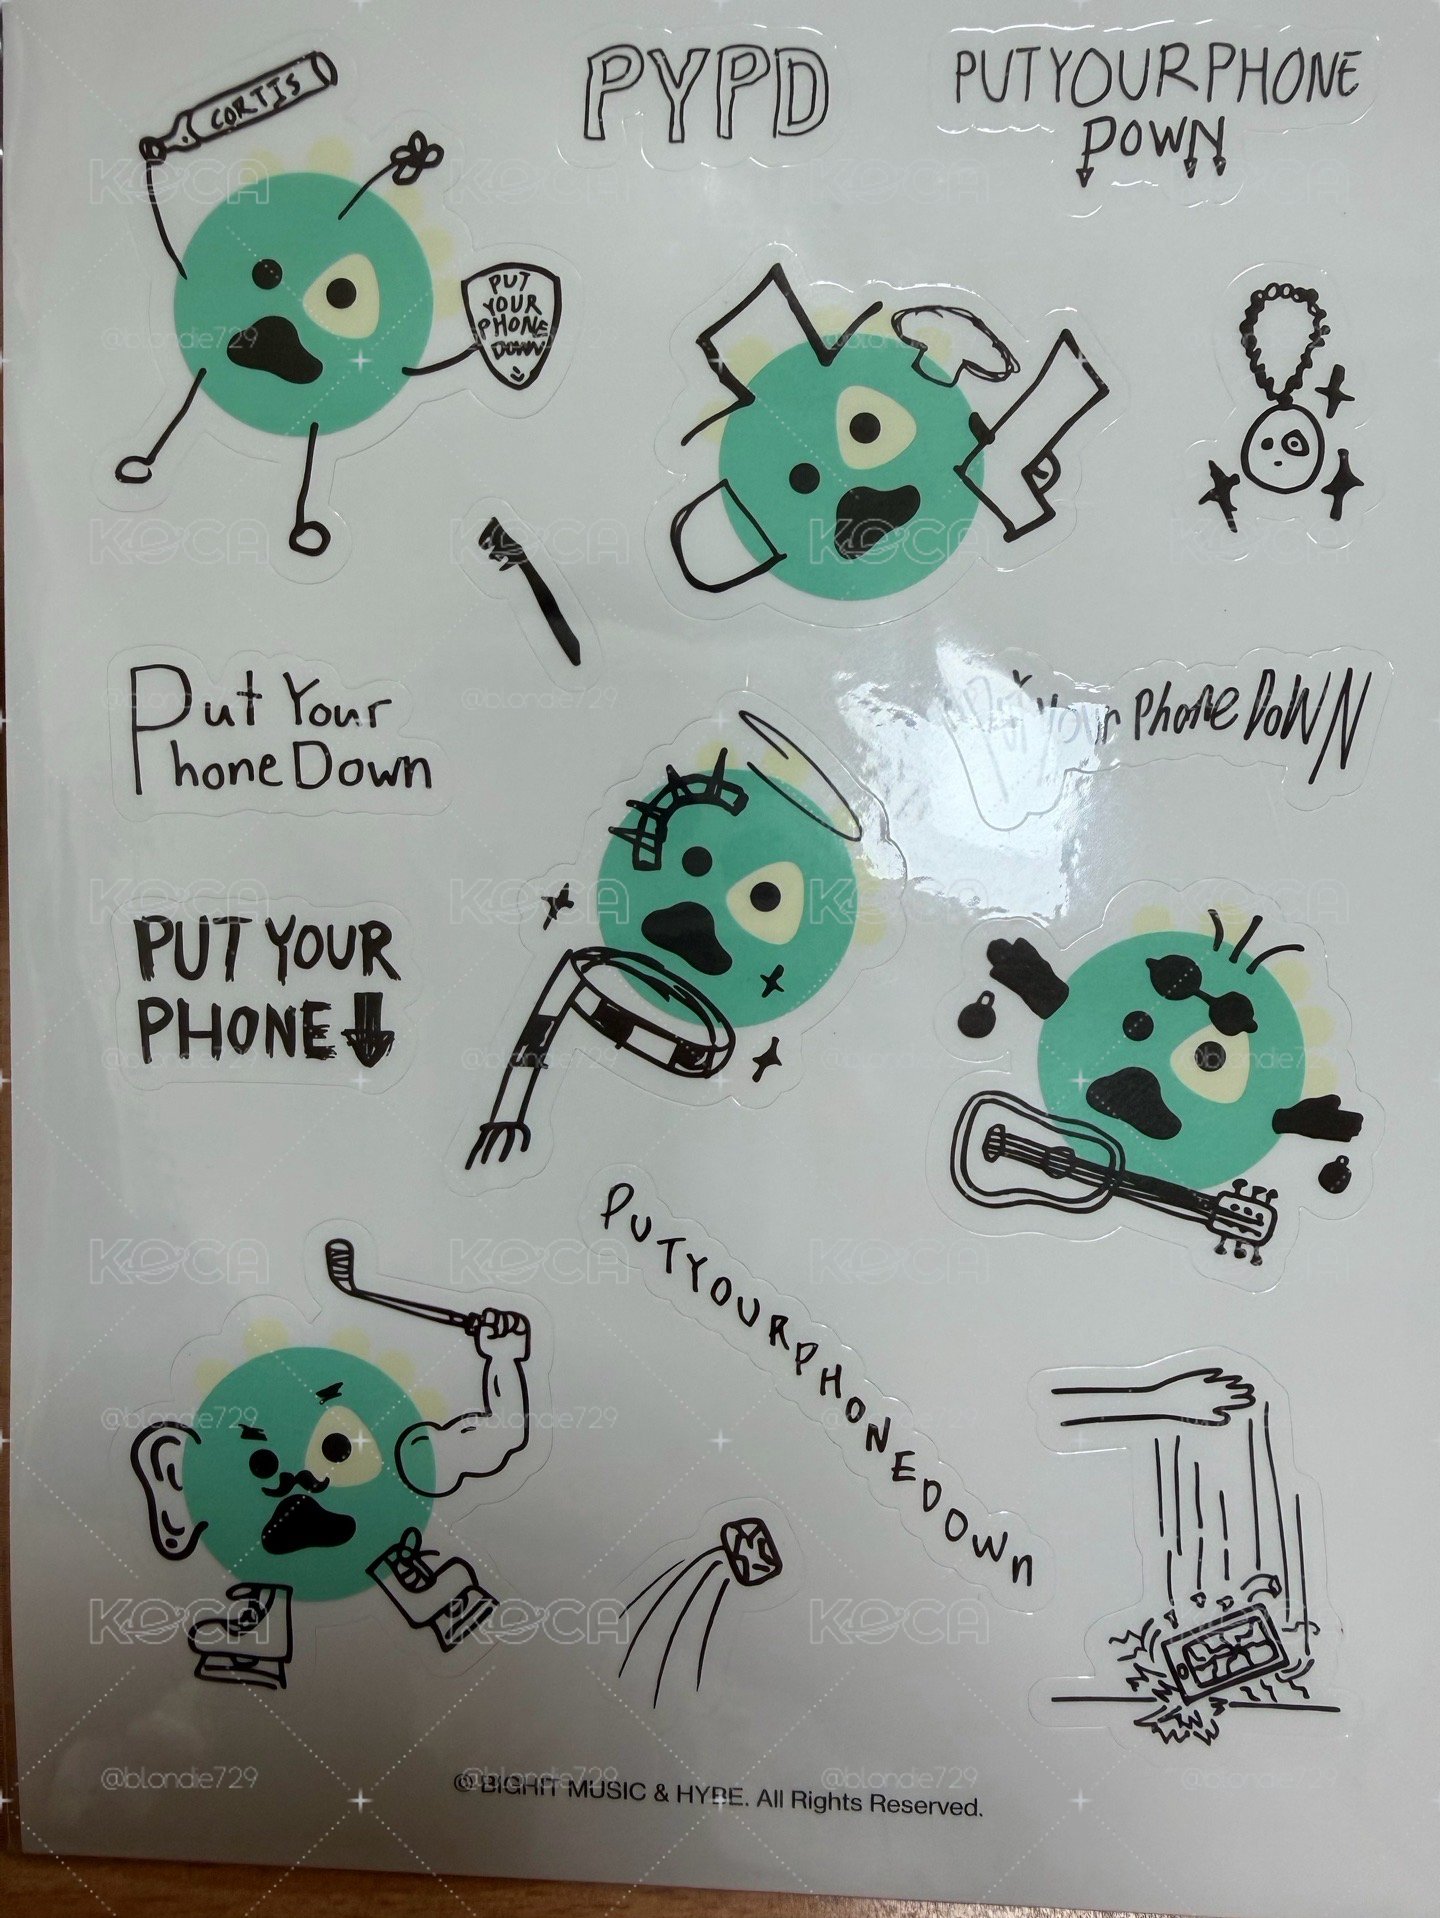 CORTIS
PYPD
PUT YOUR PHONE
DOWN
PUT
YOUR
PHONE
DOWN
Put Your
Phone Down
Your Phone DoWN
PUT YOUR
PHONE
PUTYOURPHONEDOWn
© BIGHIT MUSIC & HYBE. All Rights Reserved.
KOCA
@blondie729